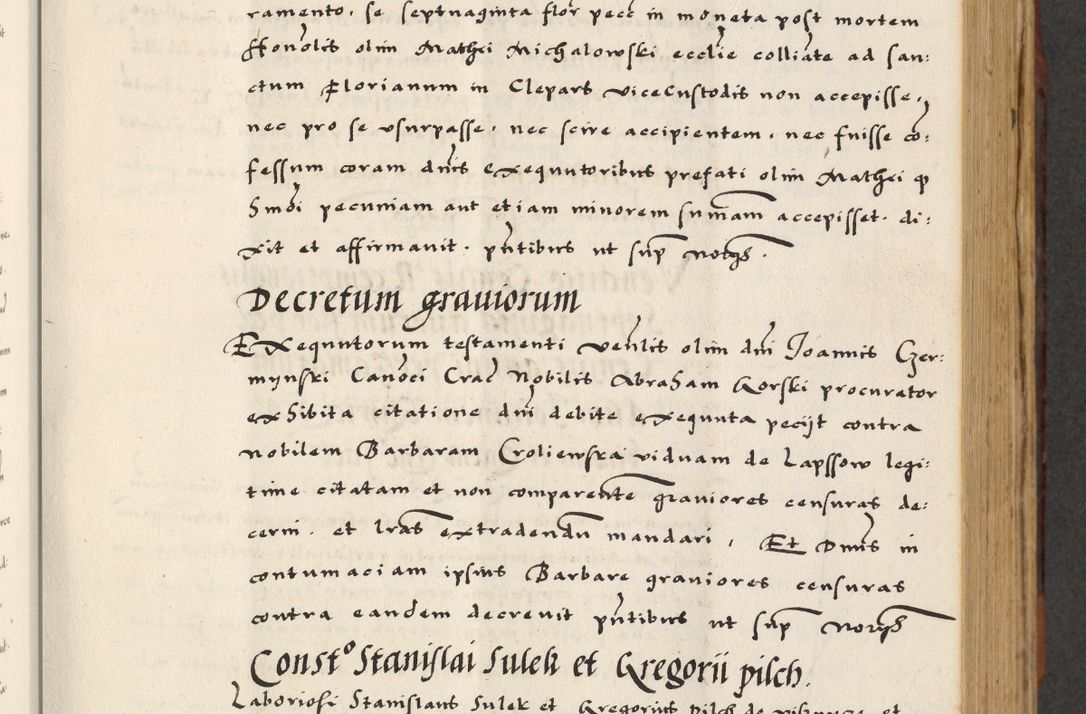 ramento. se septuaginta flor pecc in moneta post mortem
Honolis olim Mathei Michalowski ecclie colliate ad san:
ctum Florianum in Clepars viceCustodis non accepisse.
nec pro se vsurpasse. nec scire accipientem. nec fuisse co:
fessum coram dnis exequutoribus prefati olim Mathei q
hmoi pecuniam aut etiam minorem sumam accepisset. di:
xit et affirmauit. pntibus ut sup
Decretum grauiorum
Exequutorum testamenti venlis olim dni Joannis Czer:
mynski Canoci Crac Nobilis Abraham Gorski procurator
exhibita citatione dni debite exequuta pecijt contra
nobilem Barbaram Croliewska viduam de Lapssow legi:
time citatam et non comparente grauiores censuras de:
cerni. et lras extradendu mandari, Et Dnus in
contumaciam ipsius Barbare grauiores censuras
contra eandem decreuit pntibus ut sup
Const° Stanislai Sulek et Gregorii pilch.
Laboriosi Stanislaus Sulek et Gregorius Pilch de et